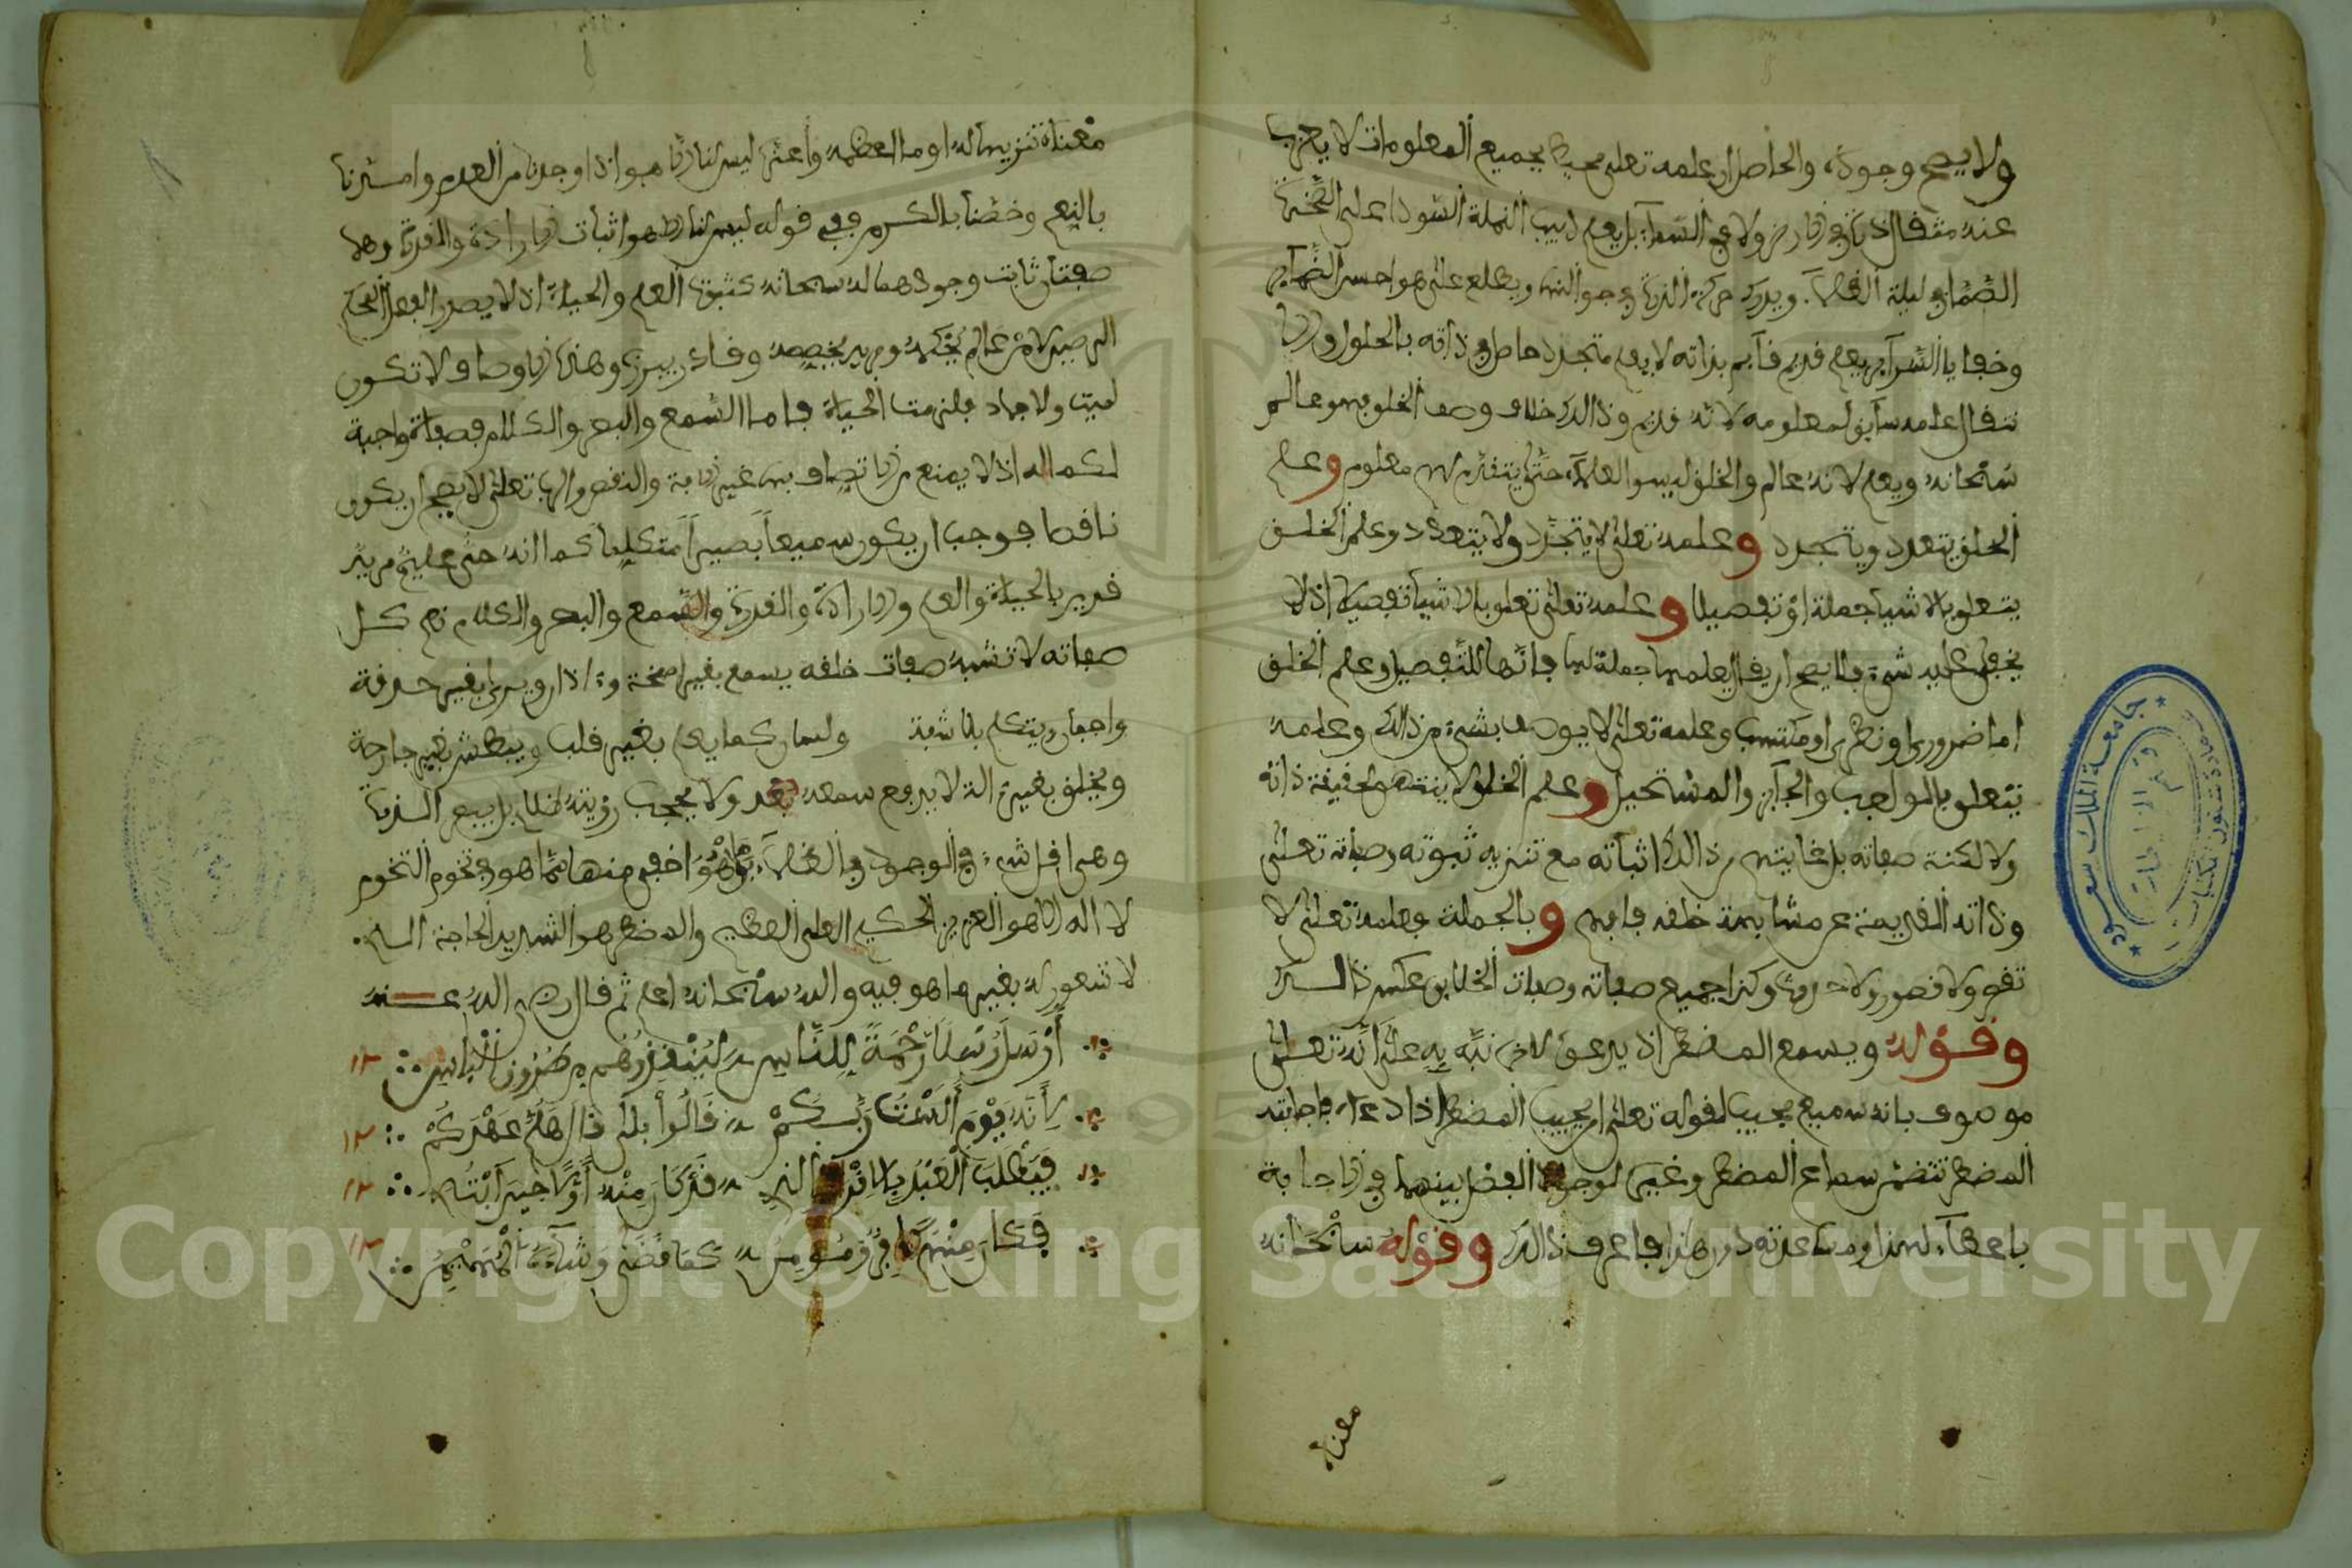 ولا يصح وجوده والحاصل ان علمه تعلى محيط بجميع المعلومات لا يعزب
عنه مثقال ذرة في الارض ولا في السماء بل يعلم دبيب النملة السوداء على الصخرة
الصماء في ليلة الظلماء ويدرك حركة الذرة في جو الهواء ويطلع على هواجس الضمائر
وخفايا السرائر بعلم قديم قائم بذاته لا بعلم متجدد حاصل في ذاته بالحلول
علمه سابق لمعلومه لانه قديم وذالك خلاف وصف الخلق فهو عالم
سبحانه ويعلم لانه عالم والخلق ليسوا حتى يتقدم لهم معلوم وعلم
الخلق يتعدد ويتجدد وعلمه تعلى لا يتجدد ولا يتعدد وعلم الخلق
يتعلق بالاشيا جملة او تفصيلا وعلمه تعلى تعلق بالاشيا تفصيلا اذ لا
يخفى عليه شيء فلا يصح ان يقال يعلمها جملة لها للتفصيل وعلم الخلق
اما ضروري او نظري او مكتسب وعلمه تعلى لا يوصف بشيء من ذالك وعلمه
يتعلق بالواجب والجائز والمستحيل وعلم الخلق لا ينتهى لحقيقة ذاته
ولا لكنه صفاته بل غايتهم من ذالك اثباته مع تنزيه ثبوته وصفاته تعلى
وذاته القديمة عن مشابهة خلقه فافهم وبالجملة فعلمه تعلى لا
نقص ولا قصور ولا حدوث وكذا جميع صفاته وصفات الخلايق عكس ذالك
وقوله ويسمع المضطر اذ يدعو لامر نبه به على انه تعلى
موصوف بانه سميع مجيب لقوله تعلى امن يجيب المضطر اذا دعاه فاجابته
المضطر تتضمن سماع المضطر وغيره لوجود الفضل بينهما في الاجابة
باعطاء لهذا ومساعدته دون هذا فاعرف ذالك وقوله سبحانه
معناه
معناه تنزيها له او ما اعظمه واعتنى ليس لنا الا هو اذ اوجدنا من العدم وامدنا
بالنعم وخصنا بالكرم ففي قوله ليس لنا الا هو اثبات الارادة والقدرة وهما
صفتان ثابت وجودهما له سبحانه كثبوت العلم والحياة اذ لا يصدر الفعل المحكم
الرصين الا من عالم يحكمه ومريد يخصصه وقادر يبرزه وهذه الاوصاف لا تكون
لميت ولا جماد فلزمت الحياة فاما السمع والبصر والكلام فصفات واجبة
لكماله اذ لا يمنع من الاتصاف بهن غير الافة والنقص والاله تعلى لا يصح ان يكون
ناقصا فوجب ان يكون سميعا بصيرا متكلما كما انه حي عليم مريد
قدير بالحياة والعلم والارادة والقدرة والسمع والبصر والكلام نعم كل
صفاته لا تشبه صفات خلقه يسمع بغير اصمخة واذان ويرى بغير حدقة
واجفان ويتكلم بلا شفة ولسان كما يعلم بغير قلب ويبطش بغير جارحة
ويخلق بغير الة لا يدفع سمعه بعد ولا يحجب رؤيته ظلام بل يبصر الذرة
وهي اقل شيء في الوجود في الظلماء وما هو اخفى منها مما هو في تخوم التخوم
لا اله الا هو العزيز الحكيم العلي العظيم والمضطر هو الشديد الحاجة الذي
لا شعور له بغير ما هو فيه والله سبحانه اعلم ثم قال رضي الله عنه
أَرْسَلَ رُسْلاً رَحْمَةً لِلنَّاسِ لِيُنْقِذَهُم مِن ضُرُوبِ الْبَاسِ ١٢
لأَنَّهُ يَوْمَ أَلَسْتُ رَبُّكُمْ قَالُوا بَلَى قَالَ هَلُمَّ عَهْدَكُمْ ١٢
فَيَطْلُبُ الْعَبْدُ الذي قَدْ كَانَ مِنْهُ أَوَّلاً حِينَ ابْتُلِي ١٢
فَكَانَ مِنْهُمْ كَافِرٌ وَمُومِنُ كَمَا قَضَى وَشَاءَهُ الْمُهَيْمِنُ ١٢
جامعة الملك سعود
عمادة شئون المكتبات
Copyright © King Saud University